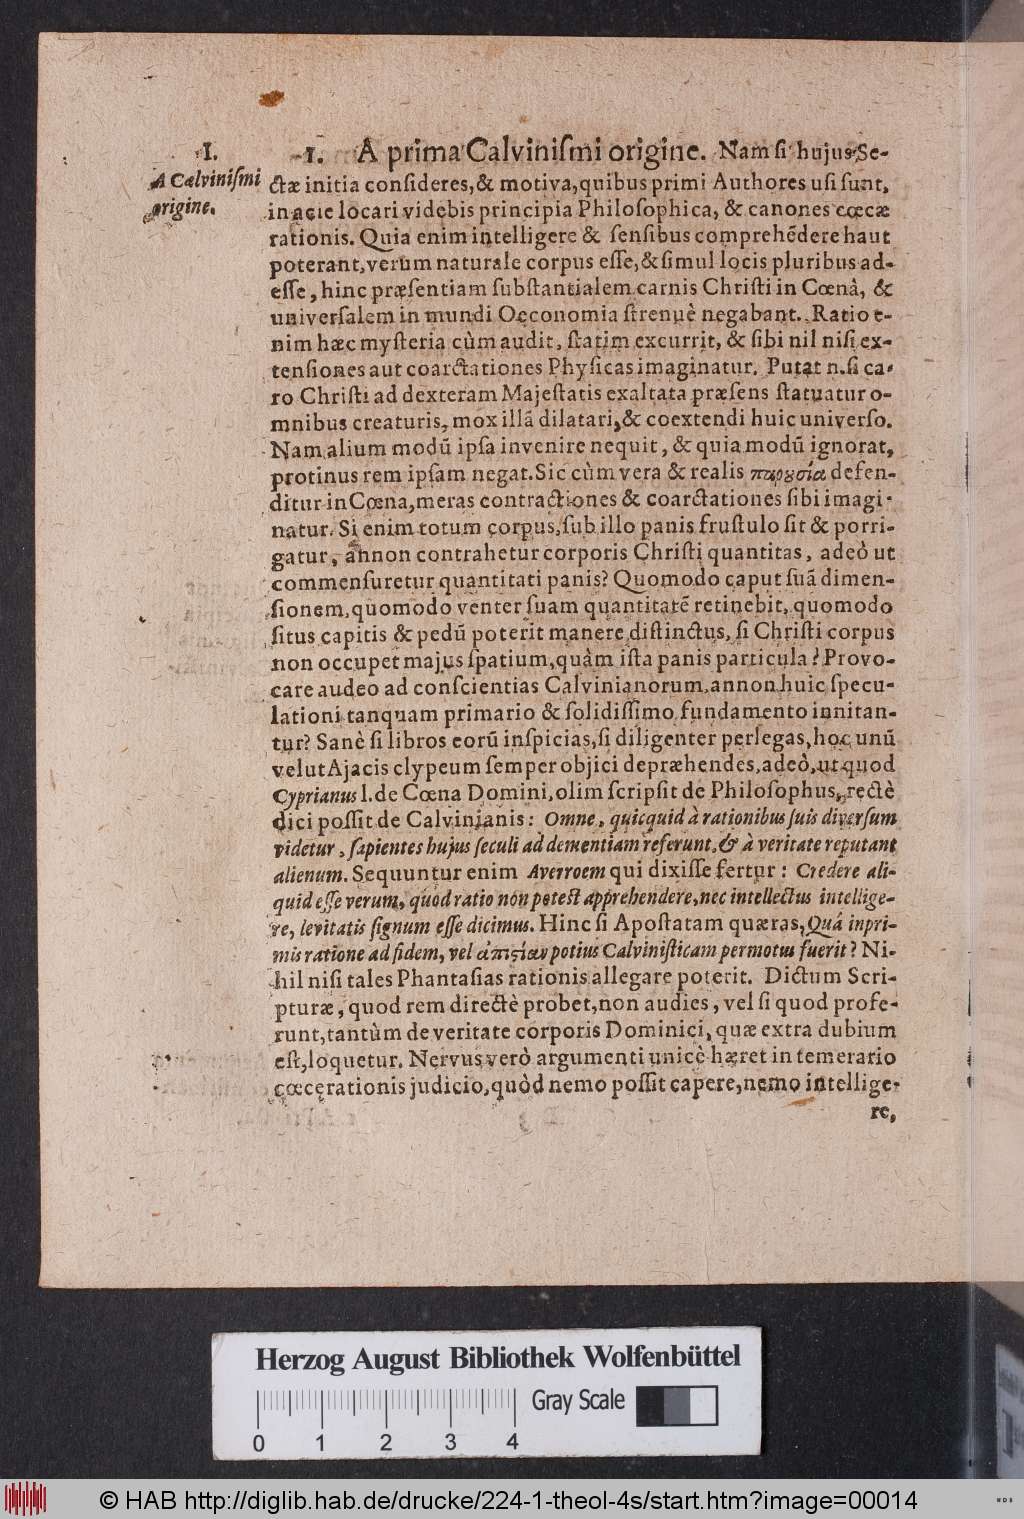 I.
A Calviniſmi
origine.
1. A prima Calviniſmi origine. Nam ſi hujus Se-
ctæ initia conſideres, & motiva, quibus primi Authores uſi ſunt,
in acie locari videbis principia Philoſophica, & canones cœcæ
rationis. Quia enim intelligere & ſenſibus comprehẽdere haut
poterant, verum naturale corpus eſſe, & ſimul locis pluribus ad-
eſſe, hinc præſentiam ſubſtantialem carnis Chriſti in Cœnâ, &
univerſalem in mundi Oeconomia ſtrenuè negabant. Ratio e-
nim hæc myſteria cùm audit, ſtatim excurrit, & ſibi nil niſi ex-
tenſiones aut coarctationes Phyſicas imaginatur. Putat n. ſi ca-
ro Chriſti ad dexteram Majeſtatis exaltata præſens ſtatuatur o-
mnibus creaturis, mox illã dilatari, & coextendi huic univerſo.
Nam alium modũ ipſa invenire nequit, & quia modũ ignorat,
protinus rem ipſam negat. Sic cùm vera & realis παρουσία defen-
ditur in Cœna, meras contractiones & coarctationes ſibi imagi-
natur. Si enim totum corpus, ſub illo panis fruſtulo ſit & porri-
gatur, annon contrahetur corporis Chriſti quantitas, adeò ut
commenſuretur quantitati panis? Quomodo caput ſuã dimen-
ſionem, quomodo venter ſuam quantitatẽ retinebit, quomodo
ſitus capitis & pedũ poterit manere diſtinctus, ſi Chriſti corpus
non occupet majus ſpatium, quàm iſta panis particula? Provo-
care audeo ad conſcientias Calvinianorum, annon huic ſpecu-
lationi tanquam primario & ſolidiſſimo fundamento innitan-
tur? Sanè ſi libros eorũ inſpicias, ſi diligenter perlegas, hoc unũ
velut Ajacis clypeum ſemper objici depræhendes, adeò, ut quod
Cyprianus l. de Cœna Domini, olim ſcripſit de Philoſophus, rectè
dici poſſit de Calvinianis: Omne, quicquid à rationibus ſuis diverſum
videtur, ſapientes hujus ſeculi ad dementiam referunt, & à veritate reputant
alienum. Sequuntur enim Averroem qui dixiſſe fertur: Credere ali-
quid eſſe verum, quod ratio non poteſt apprehendere, nec intellectus intellige-
re, levitatis ſignum eſſe dicimus. Hinc ſi Apoſtatam quæras, Quâ inpri-
mis ratione ad fidem, vel ἀπιστίαν potius Calviniſticam permotus fuerit? Ni-
hil niſi tales Phantaſias rationis allegare poterit. Dictum Scri-
pturæ, quod rem directè probet, non audies, vel ſi quod profe-
runt, tantùm de veritate corporis Dominici, quæ extra dubium
eſt, loquetur. Nervus verò argumenti unicè hæret in temerario
cœcę rationis judicio, quòd nemo poſſit capere, nemo intellige-
re,
Herzog August Bibliothek Wolfenbüttel
Gray Scale
0 1 2 3 4
© HAB http://diglib.hab.de/drucke/224-1-theol-4s/start.htm?image=00014
WDB